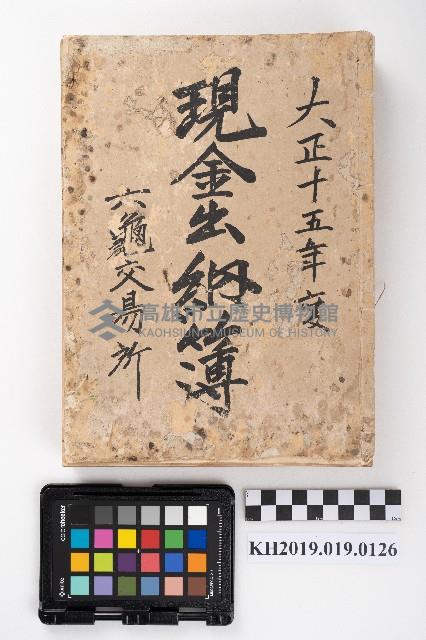 大正十五年度
現金出納簿
六龜交易所
高雄市立歷史博物館
KAOHSIUNG MUSEUM OF HISTORY
colorchecker
x-rite
KH2019.019.0126